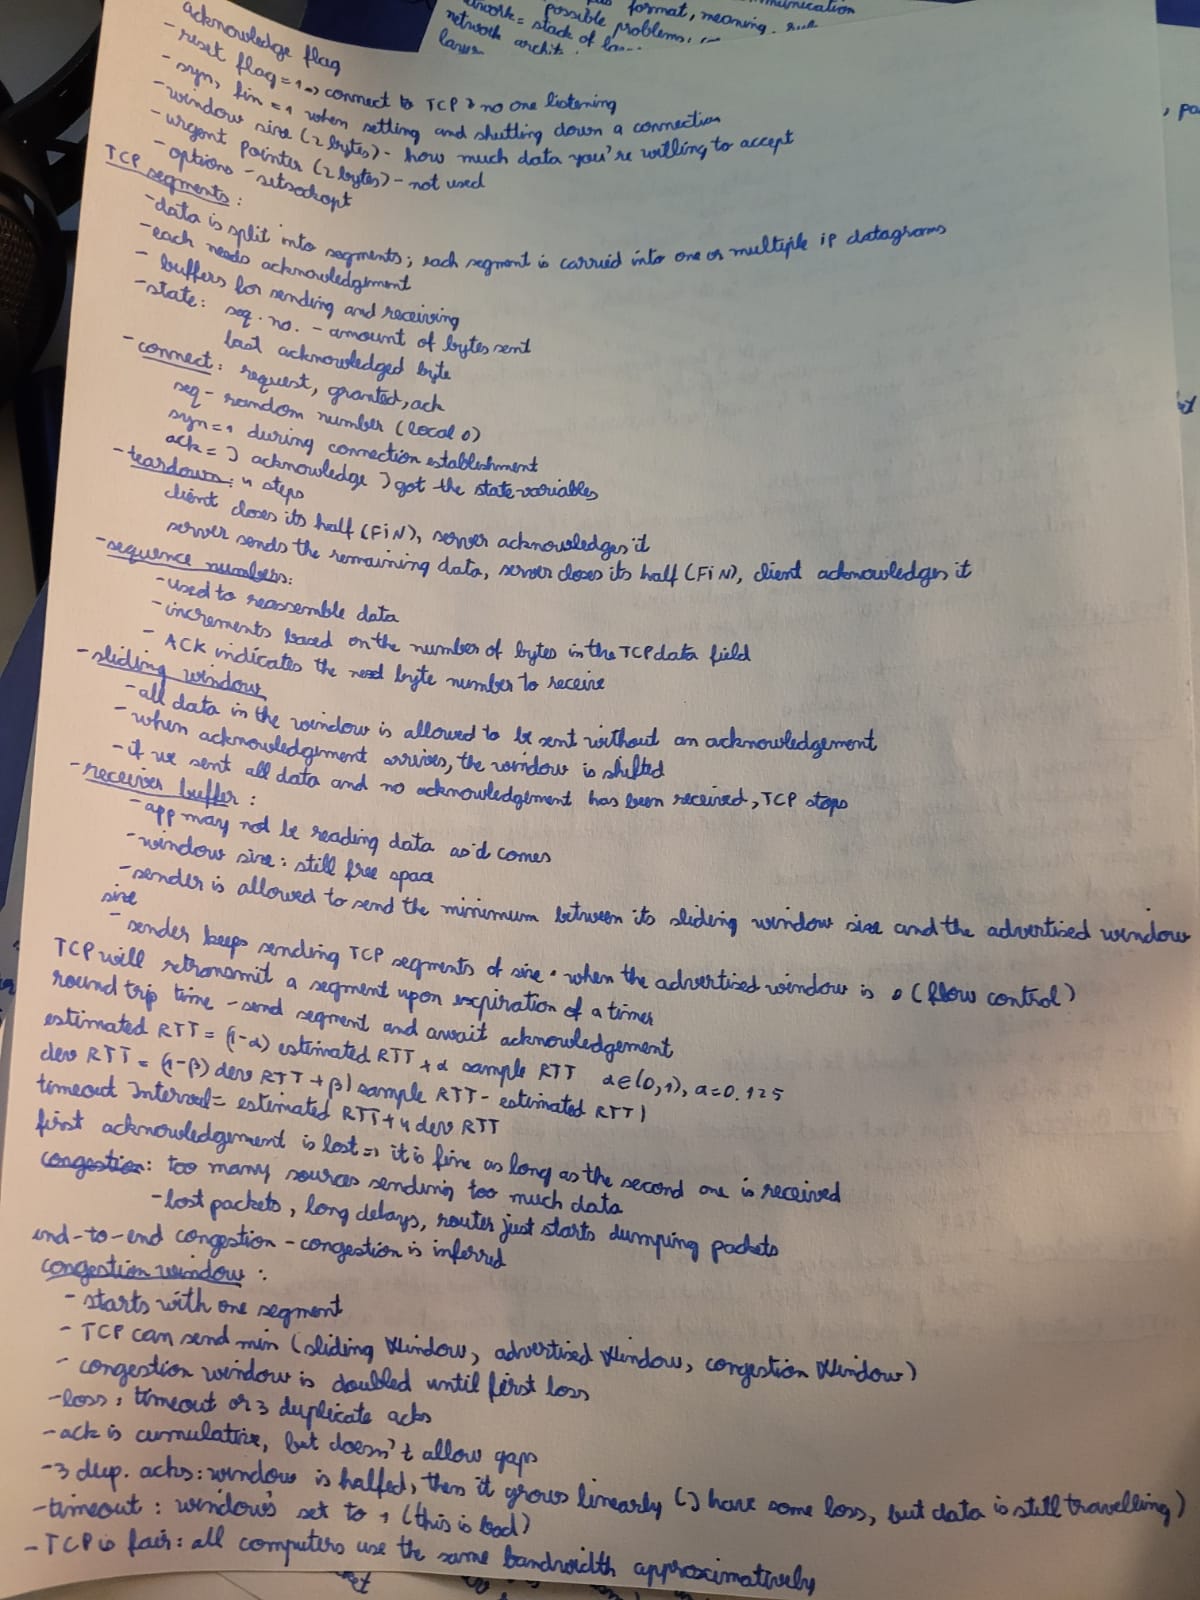 munication
format, meaning,
possible problems,
network = stack of
network archit.
layer
, pa
acknowledge flag
- reset flag = 1 => connect to TCP & no one listening
- syn, fin = 1 when setting and shutting down a connection
- window size (2 bytes) - how much data you're willing to accept
- urgent pointer (2 bytes) - not used
- options - setsockopt
TCP segments:
- data is split into segments; each segment is carried into one or multiple ip datagrams
- each needs acknowledgement
- buffers for sending and receiving
- state: seq. no. - amount of bytes sent
last acknowledged byte
- connect: request, granted, ack
seq - random number (local 0)
syn = 1 during connection establishment
ack = I acknowledge I got the state variables
- teardown: 4 steps
client closes its half (FiN), server acknowledges it
server sends the remaining data, server closes its half (FiN), client acknowledges it
- sequence numbers:
- used to reassemble data
- increments based on the number of bytes in the TCP data field
- ACK indicates the next byte number to receive
- sliding window
- all data in the window is allowed to be sent without an acknowledgement
- when acknowledgement arrives, the window is shifted
- if we sent all data and no acknowledgement has been received, TCP stops
- receiver buffer:
- app may not be reading data as'd comes
- window size: still free space
- sender is allowed to send the minimum between its sliding window size and the advertised window
size
- sender keeps sending TCP segments of size when the advertised window is 0 (flow control)
TCP will retransmit a segment upon expiration of a timer
round trip time - send segment and await acknowledgement
estimated RTT = (1-α) estimated RTT + α sample RTT α∈(0,1), a=0.125
dev RTT = (1-β) dev RTT + β|sample RTT - estimated RTT|
timeout Interval = estimated RTT + 4 dev RTT
first acknowledgement is lost => it is fine as long as the second one is received
congestion: too many sources sending too much data
- lost packets, long delays, router just starts dumping packets
end-to-end congestion - congestion is inferred
congestion window:
- starts with one segment
- TCP can send min (sliding Window, advertised Window, congestion Window)
- congestion window is doubled until first loss
- loss: timeout or 3 duplicate acks
- ack is cumulative, but doesn't allow gaps
- 3 dup. acks: window is halfed, then it grows linearly (I have some loss, but data is still travelling)
- timeout: window's set to 1 (this is bad)
- TCP is fair: all computers use the same bandwidth approximatively